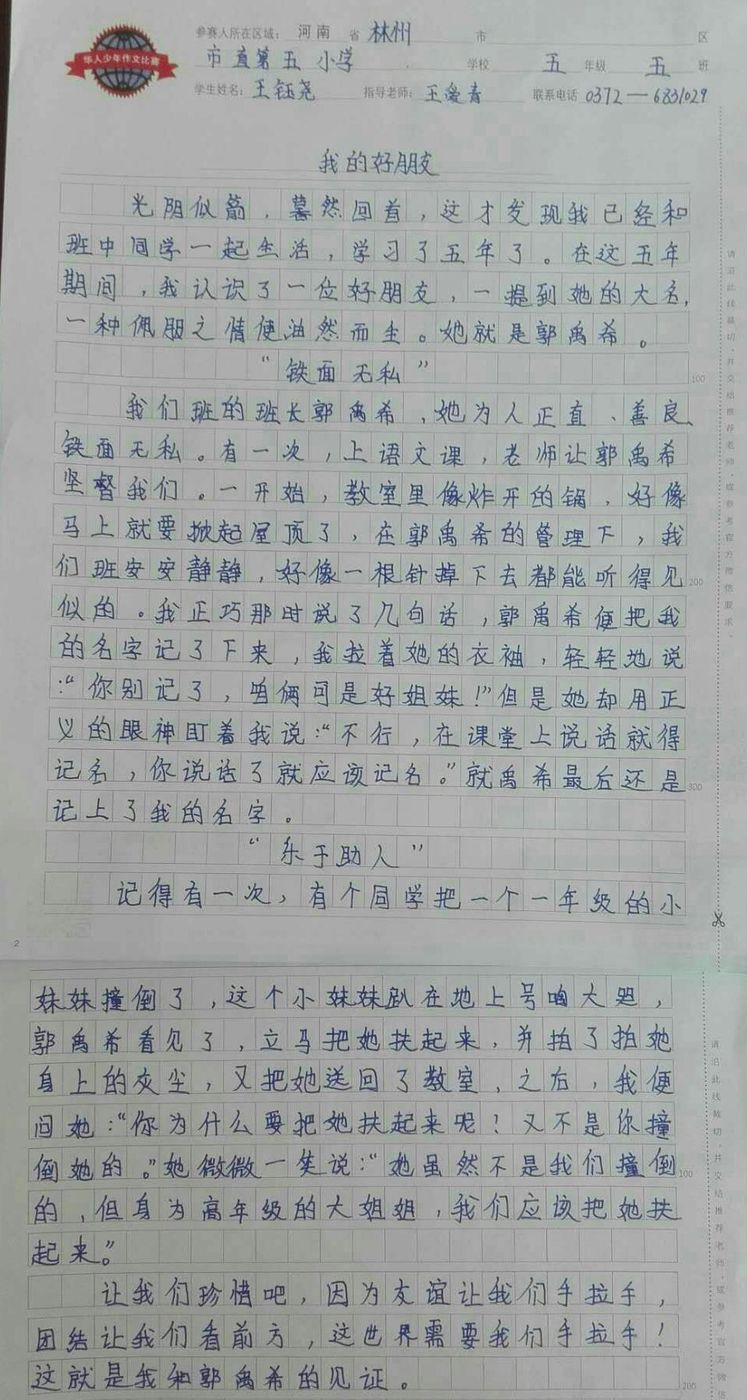 华人少年作文比赛
参赛人所在区域： 河南 省 林州 市 区
市直第五小学 学校 五 年级 五 班
学生姓名： 王钰尧 指导老师： 王爱青 联系电话 0372—6831029
我的好朋友
光阴似箭，蓦然回首，这才发现我已经和
班中同学一起生活，学习了五年了。在这五年
期间，我认识了一位好朋友，一提到她的大名，
一种佩服之情便油然而生。她就是郭禹希。
“铁面无私”
100
我们班的班长郭禹希，她为人正直、善良、
铁面无私。有一次，上语文课，老师让郭禹希
坚督我们。一开始，教室里像炸开的锅，好像
马上就要掀起屋顶了，在郭禹希的管理下，我
们班安安静静，好像一根针掉下去都能听得见
200
似的。我正巧那时说了几句话，郭禹希便把我
的名字记了下来，我拉着她的衣袖，轻轻地说
：“你别记了，咱俩可是好姐妹！”但是她却用正
义的眼神盯着我说：“不行，在课堂上说话就得
记名，你说话了就应该记名。”就禹希最后还是
300
记上了我的名字。
“乐于助人”
记得有一次，有个同学把一个一年级的小
2
妹妹撞倒了，这个小妹妹趴在地上号啕大哭，
郭禹希看见了，立马把她扶起来，并拍了拍她
身上的灰尘，又把她送回了教室。之后，我便
问她：“你为什么要把她扶起来呢？又不是你撞
倒她的。”她微微一笑说：“她虽然不是我们撞倒
100
的，但身为高年级的大姐姐，我们应该把她扶
起来。”
让我们珍惜吧，因为友谊让我们手拉手，
团结让我们看前方，这世界需要我们手拉手！
这就是我和郭禹希的见证。
200